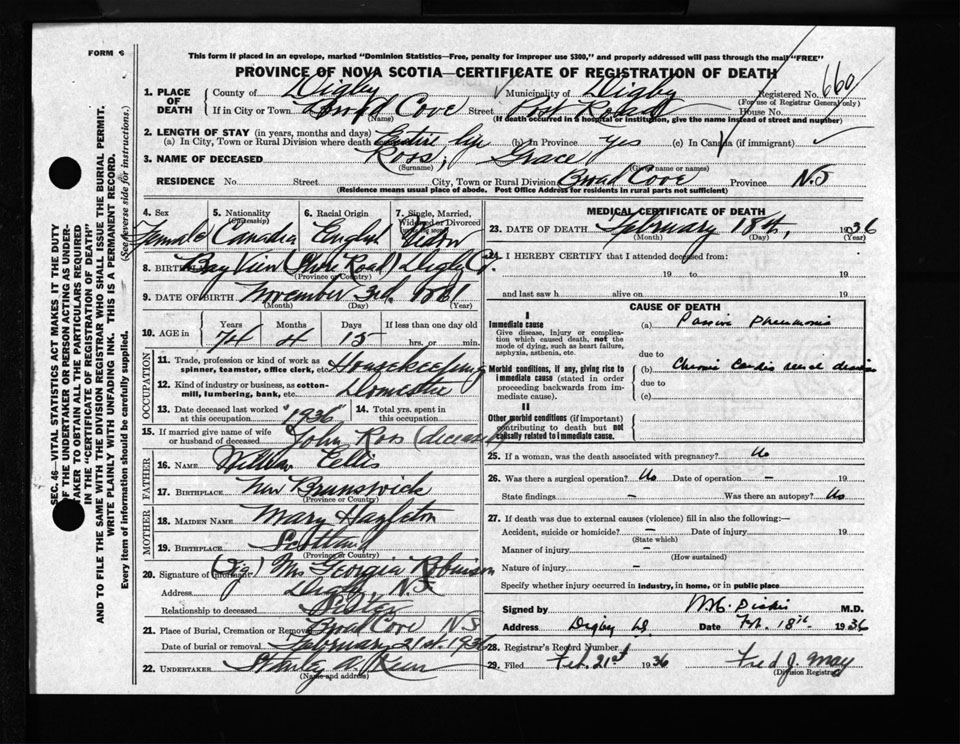 FORM 6
This form if placed in an envelope, marked "Dominion Statistics—Free, penalty for improper use $300," and properly addressed will pass through the mail "FREE"
PROVINCE OF NOVA SCOTIA—CERTIFICATE OF REGISTRATION OF DEATH
1. PLACE OF DEATH County of Digby Municipality of Digby Registered No. 660
(For use of Registrar General only)
If in City or Town Broad Cove Street Post House No.
(Name) (If death occurred in a hospital or institution, give the name instead of street and number)
2. LENGTH OF STAY (in years, months and days)
(a) In City, Town or Rural Division where death Entire life (b) In Province Yes (c) In Canada (if immigrant)
3. NAME OF DECEASED Ross, Grace
(Surname) (Given name or names)
RESIDENCE No. Street City, Town or Rural Division Broad Cove Province N.S
(Residence means usual place of abode. Post Office Address for residents in rural parts not sufficient)
4. Sex 5. Nationality (Citizenship) 6. Racial Origin 7. Single, Married, Widowed or Divorced
Female Canadian English Widow
8. BIRTHPLACE Bay View Digby Co.
(Province or Country)
9. DATE OF BIRTH November 3rd. 1861
(Month) (Day) (Year)
10. AGE in Years Months Days If less than one day old
74 15 hrs. or min.
OCCUPATION
11. Trade, profession or kind of work as spinner, teamster, office clerk, etc. Housekeeping
12. Kind of industry or business, as cotton-mill, lumbering, bank, etc. Domestic
13. Date deceased last worked at this occupation "1936" 14. Total yrs. spent in this occupation
15. If married give name of wife or husband of deceased John Ross (deceased)
FATHER
16. NAME William Ellis
17. BIRTHPLACE New Brunswick
(Province or Country)
MOTHER
18. MAIDEN NAME Mary
19. BIRTHPLACE Scotland
(Province or Country)
20. Signature of informant (Sig) Mrs Georgia Robinson
Address Digby, N.S.
Relationship to deceased Sister
21. Place of Burial, Cremation or Removal Broad Cove N S
Date of burial or removal February 21st. 1936
22. UNDERTAKER Stanley
(Name and address)
MEDICAL CERTIFICATE OF DEATH
23. DATE OF DEATH February 18th, 1936
(Month) (Day) (Year)
24. I HEREBY CERTIFY that I attended deceased from:
19 to 19
and last saw h alive on 19
CAUSE OF DEATH
I
Immediate cause
Give disease, injury or complication which caused death, not the mode of dying, such as heart failure, asphyxia, asthenia, etc.
(a) Passive Pneumonia
due to
Morbid conditions, if any, giving rise to immediate cause (stated in order proceeding backwards from immediate cause).
(b) Chronic Cardio renal disease
due to
(c)
II
Other morbid conditions (if important) contributing to death but not causally related to immediate cause.
25. If a woman, was the death associated with pregnancy? No
26. Was there a surgical operation? No Date of operation – 19
State findings – Was there an autopsy? No
27. If death was due to external causes (violence) fill in also the following:—
Accident, suicide or homicide? – Date of injury 19
(State which)
Manner of injury –
(How sustained)
Nature of injury –
Specify whether injury occurred in industry, in home, or in public place
Signed by M.D.
Address Digby NS Date Feb. 18th 1936
28. Registrar's Record Number
29. Filed Feb. 21st 1936 Fred J. May
(Division Registrar)
SEC. 46—VITAL STATISTICS ACT MAKES IT THE DUTY
OF THE UNDERTAKER OR PERSON ACTING AS UNDER-
TAKER TO OBTAIN ALL THE PARTICULARS REQUIRED
IN THE "CERTIFICATE OF REGISTRATION OF DEATH"
AND TO FILE THE SAME WITH THE DIVISION REGISTRAR WHO SHALL ISSUE THE BURIAL PERMIT.
WRITE PLAINLY WITH UNFADING INK. THIS IS A PERMANENT RECORD.
Every item of information should be carefully supplied. (See reverse side for instructions.)